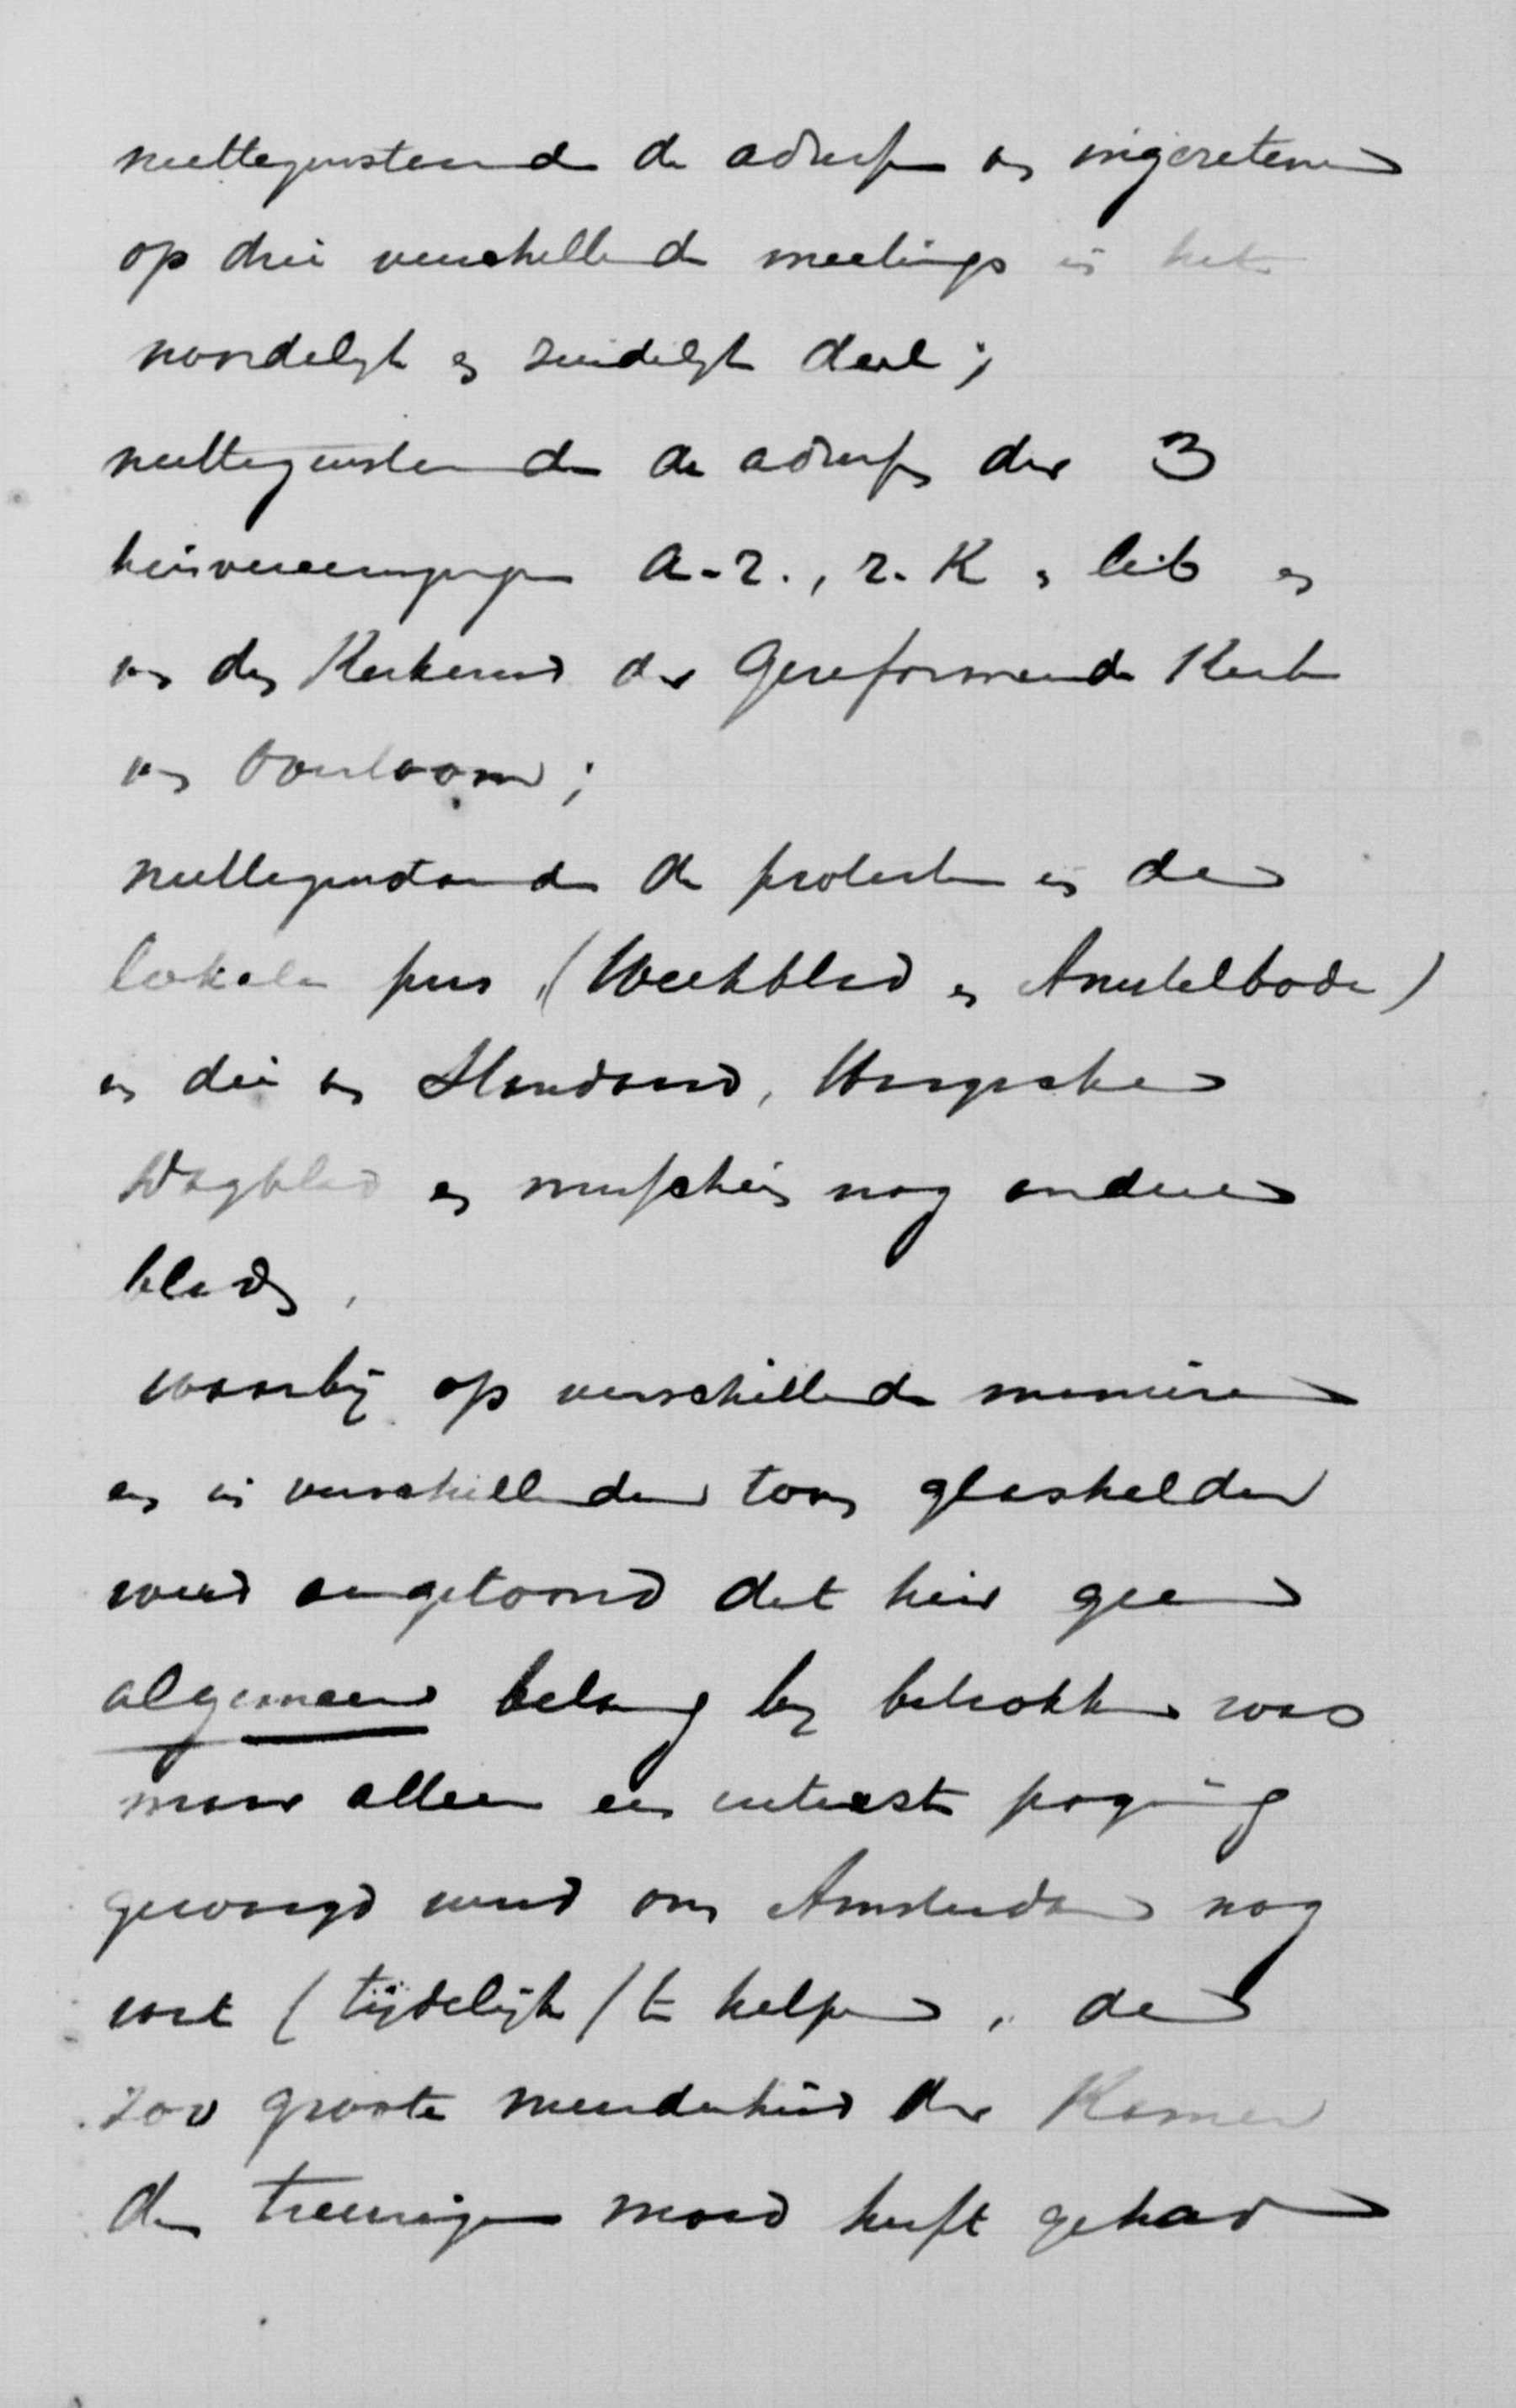 niettegenstaande de adressen van ingezetenen
op drie verschillende meetings in het
noordelijk en zuidelijk deel;
niettegenstaande de adressen der 3
kiesvereenigingen a.-r., r.-K en lib en
van den Kerkeraad der Gereformeerde Kerk
van Overtoom;
niettegenstaande de protesten in de
lokale pers (Weekblad en Amstelbode)
en die van Standaard, Haagsche
Dagblad en misschien nog andere
bladen,
waarbij op verschillende manieren
en in verschillenden toon glashelder
werd aangetoond dat hier geen
algemeen belang bij betrokken was
maar alleen een uiterste poging
gewaagd werd om Amsterdam nog
wat (tijdelijk) te helpen, de
zoo groote meerderheid der Kamer
den treurigen moed heeft gehad